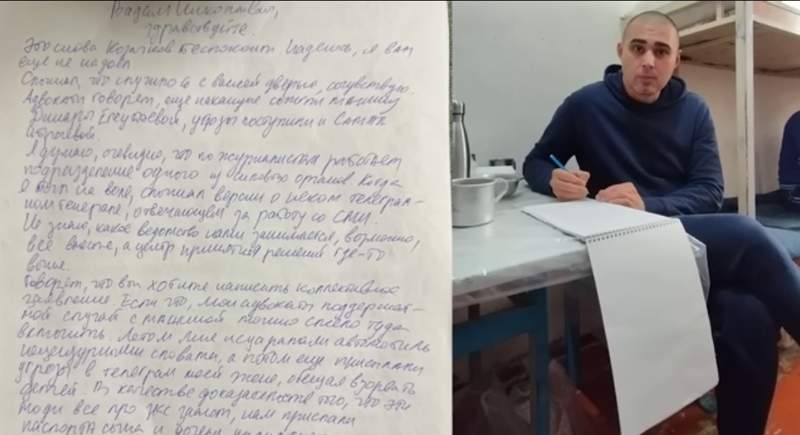 Вадим Николаевич,
здравствуйте.
Это снова Козачков беспокоит. Надеюсь, я вам
еще не надоел.
Слышал, что случилось с вашей дверью, сочувствую.
Адвокаты говорят, еще накануне сожгли машину
Динары Егеубаевой, угрозы поступили и Самал
Ибраевой.
Я думаю, очевидно, что по журналистам работает
подразделение одного из силовых органов. Когда
я был на воле, слышал версии о неком телеграм-
ном генерале, отвечающем за работу со СМИ.
Не знаю, какое ведомство нами занимается, возможно,
все вместе, а центр принятия решений где-то
выше.
Говорят, что вы хотите написать коллективное
заявление. Если что, мои адвокаты поддержат
мой случай с машиной можно смело туда
включить. Летом мне исцарапали автомобиль
нецензурными словами, а потом еще присылали
угрозы в телеграм моей жене, обещая взорвать
детей. В качестве доказательств того, что эти
люди все про нас знают, нам прислали
паспорта сына и дочери